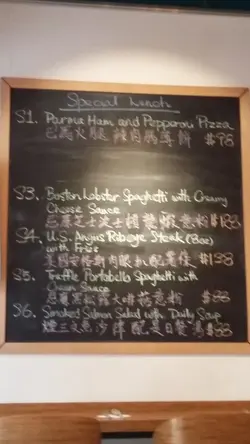 Special Lunch
S1. Parma Ham and Pepperoni Pizza
巴馬火腿辣肉腸薄餅 $98
S3. Boston Lobster Spaghetti with Creamy
Cheese Sauce
芝士波士頓龍蝦意粉 $188
S4. U.S. Angus Ribeye Steak (8oz)
with Fries
美國安格斯肉眼扒配薯條 $138
S5. Truffle Portabello Spaghetti with
Cream Sauce
忌廉黑松露大啡菇意粉 $88
S6. Smoked Salmon Salad with Daily Soup
煙三文魚沙律配是日餐湯 $88